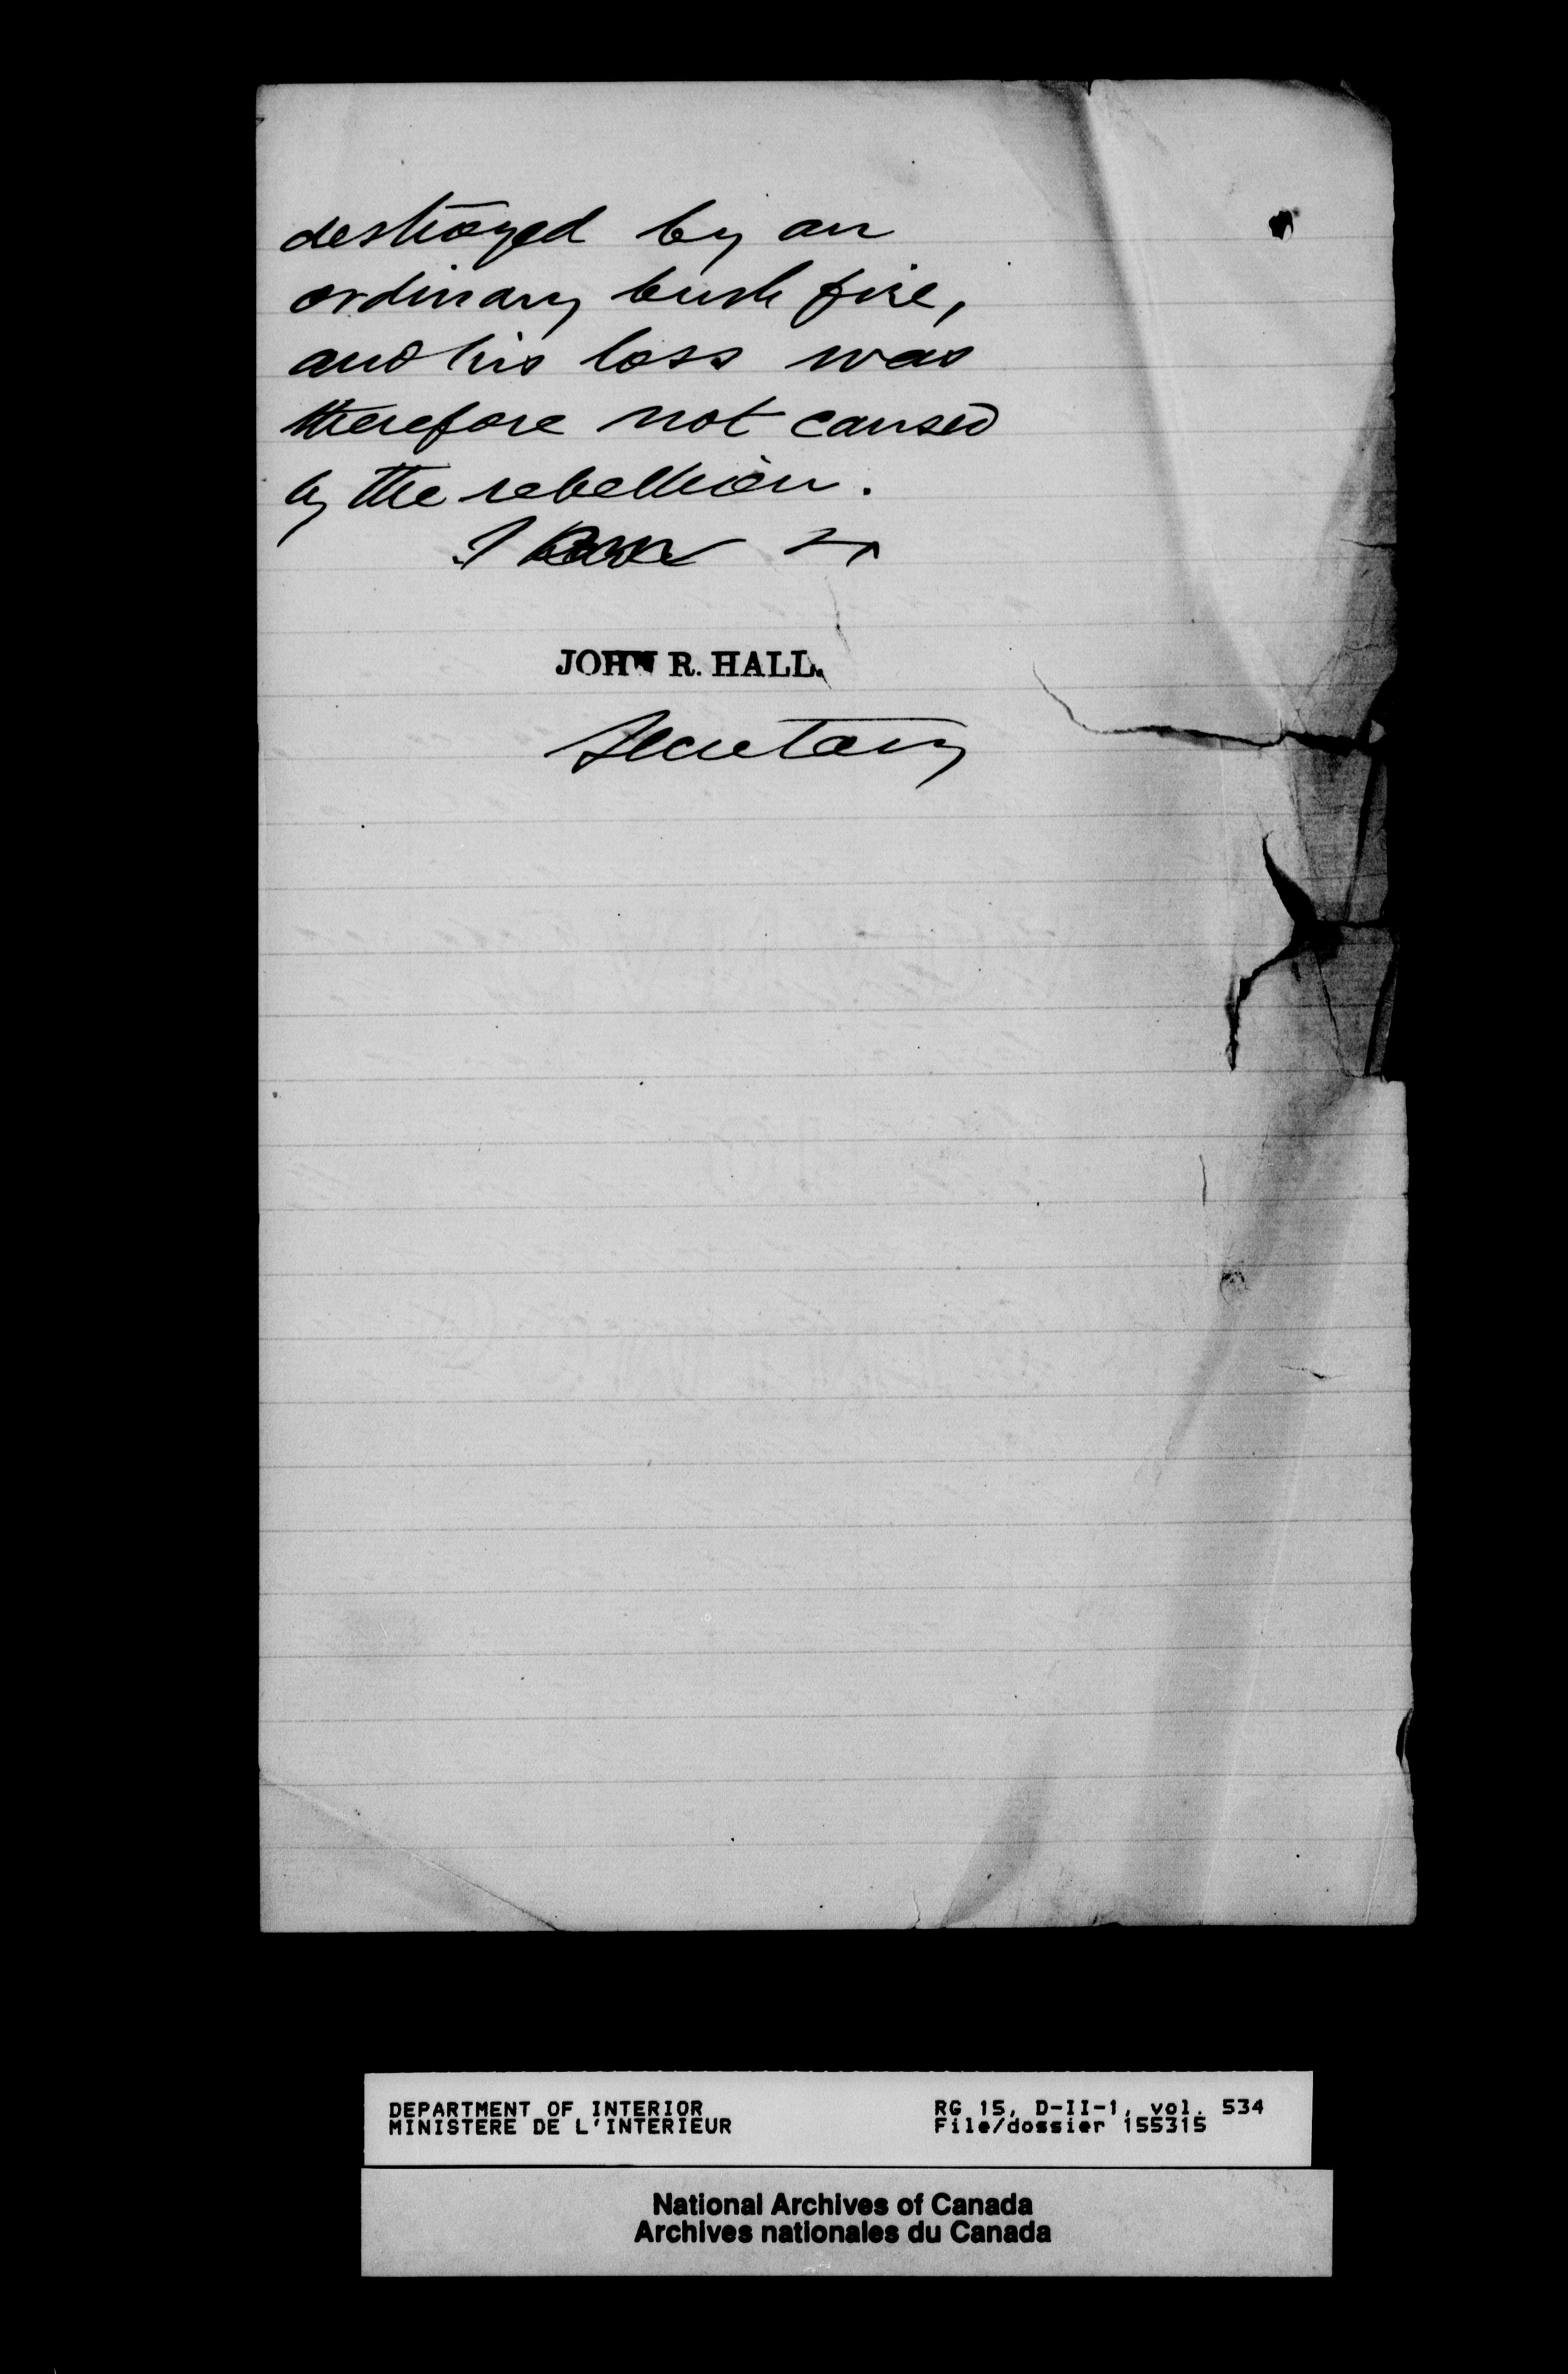 destroyed by an
ordinary bush fire,
and his loss was
therefore not caused
by the rebellion.
I have
JOHN R. HALL.
Secretary
DEPARTMENT OF INTERIOR
MINISTERE DE L'INTERIEUR
RG 15, D-II-1, vol. 534
File/dossier 155315
National Archives of Canada
Archives nationales du Canada